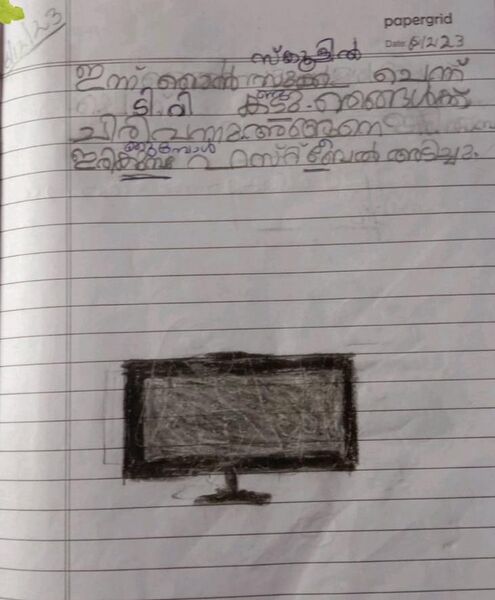 6/2/23
papergrid
Date: 6/2/23
സ്കൂളിൽ
ഇന്ന് ഞാൻ ചെന്ന്
ടി.വി കണ്ടു. ഞങ്ങൾക്ക്
ചിരി വന്നു അങ്ങനെ
ഇരിക്കുമ്പോൾ ഫസ്റ്റ് ബെൽ അടിച്ചു.